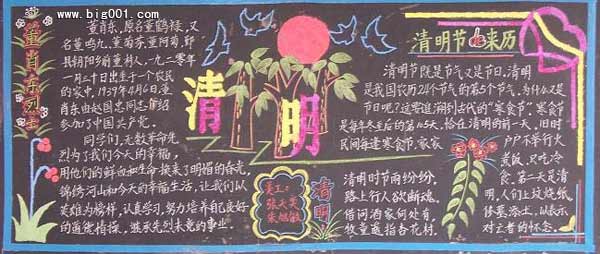 www.big001.com
董肖东烈士
董肖东,原名董鹤禄,又
名董鸣九、董菊荪、董阿菊,鄞
县朝阳乡前董村人,一九一二零年
一月二十日出生于一个农民
的家中,1939年4月6日,董
肖东由赵国忠同志介绍
参加了中国共产党。
同学们,无数革命先
烈为了我们今天的幸福,
用他们的鲜血和生命换来了明媚的春光,
锦绣河山和今天的幸福生活,让我们以
英雄为榜样,认真学习,努力培养自己良好
的道德情操,继承先烈未竟的事业.
清明
美工:
张天笑
朱旭敏
清明
清明时节雨纷纷,
路上行人欲断魂。
借问酒家何处有,
牧童遥指杏花村。
清明节的来历
清明节既是节气又是节日,清明
是我国农历24个节气的第5个节气,为什么又是
节日呢?这要追溯到古代的“寒食节”,寒食节
是每年冬至后的第105天,恰在清明的前一天,旧时
民间每逢寒食节,家家
户户不举行火
煮饭,只吃冷
食,第二天是清
明,人们上坟烧纸,
修墓添土,以表示
对亡者的怀念。